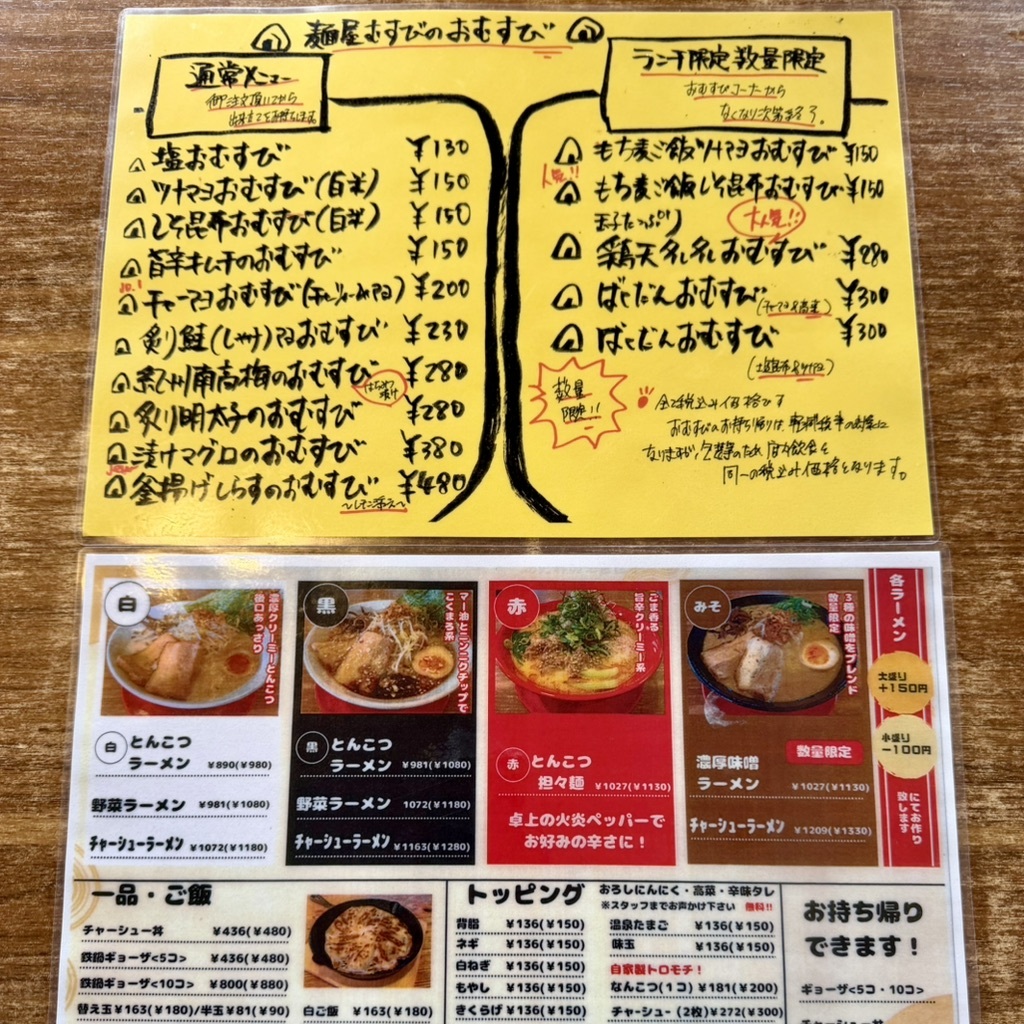 麺屋むすびのおむすび
通常メニュー
御注文頂いてから
塩おむすび ¥130
ツナマヨおむすび(白米) ¥150
しそ昆布おむすび(白米) ¥150
旨辛キムチのおむすび ¥150
NO.1
チャーマヨおむすび(チャーシューマヨ) ¥200
炙り鮭(しゃけ)のおむすび ¥230
紀州南高梅のおむすび ¥280
はちみつ漬け
炙り明太子のおむすび ¥280
漬けマグロのおむすび ¥380
New
釜揚げしらすのおむすび ¥480
〜しそ添え〜
ランチ限定数量限定
おむすびコーナーから
なくなり次第終了。
もち麦ご飯ツナマヨおむすび ¥150
人気!!
もち麦ご飯しそ昆布おむすび ¥150
玉子たっぷり
大人気!!
鶏天タルタルおむすび ¥280
ばくだんおむすび ¥300
(チャーマヨ&高菜)
ばくだんおむすび ¥300
数量
限定!!
全て税込み価格です
おむすびのお持ち帰りは、軽減税率の対象に
なりますが、店内飲食と
同一の税込み価格となります。
白
濃厚クリーミーとんこつ
後口あっさり
白 とんこつ
ラーメン ¥890(¥980)
野菜ラーメン ¥981(¥1080)
チャーシューラーメン ¥1072(¥1180)
黒
マー油とニンニクチップで
こくまろ系
黒 とんこつ
ラーメン ¥981(¥1080)
野菜ラーメン 1072(¥1180)
チャーシューラーメン ¥1163(¥1280)
赤
ごま香る
旨辛クリーミー系
赤 とんこつ
担々麺 ¥1027(¥1130)
卓上の火炎ペッパーで
お好みの辛さに!
みそ
3種の味噌をブレンド
数量限定
数量限定
濃厚味噌
ラーメン ¥1027(¥1130)
チャーシューラーメン ¥1209(¥1330)
各ラーメン
大盛り
+150円
小盛り
−100円
にてお作り
致します
一品・ご飯
チャーシュー丼 ¥436(¥480)
鉄鍋ギョーザ<5コ> ¥436(¥480)
鉄鍋ギョーザ<10コ> ¥800(¥880)
替え玉¥163(¥180)/半玉¥81(¥90)
白ご飯 ¥163(¥180)
トッピング
おろしにんにく・高菜・辛味タレ
※スタッフまでお声かけ下さい 無料!!
背脂 ¥136(¥150)
ネギ ¥136(¥150)
白ねぎ ¥136(¥150)
もやし ¥136(¥150)
きくらげ ¥136(¥150)
温泉たまご ¥136(¥150)
味玉 ¥136(¥150)
自家製トロモチ!
なんこつ(1コ) ¥181(¥200)
チャーシュー(2枚)¥272(¥300)
お持ち帰り
できます!
ギョーザ<5コ・10コ>